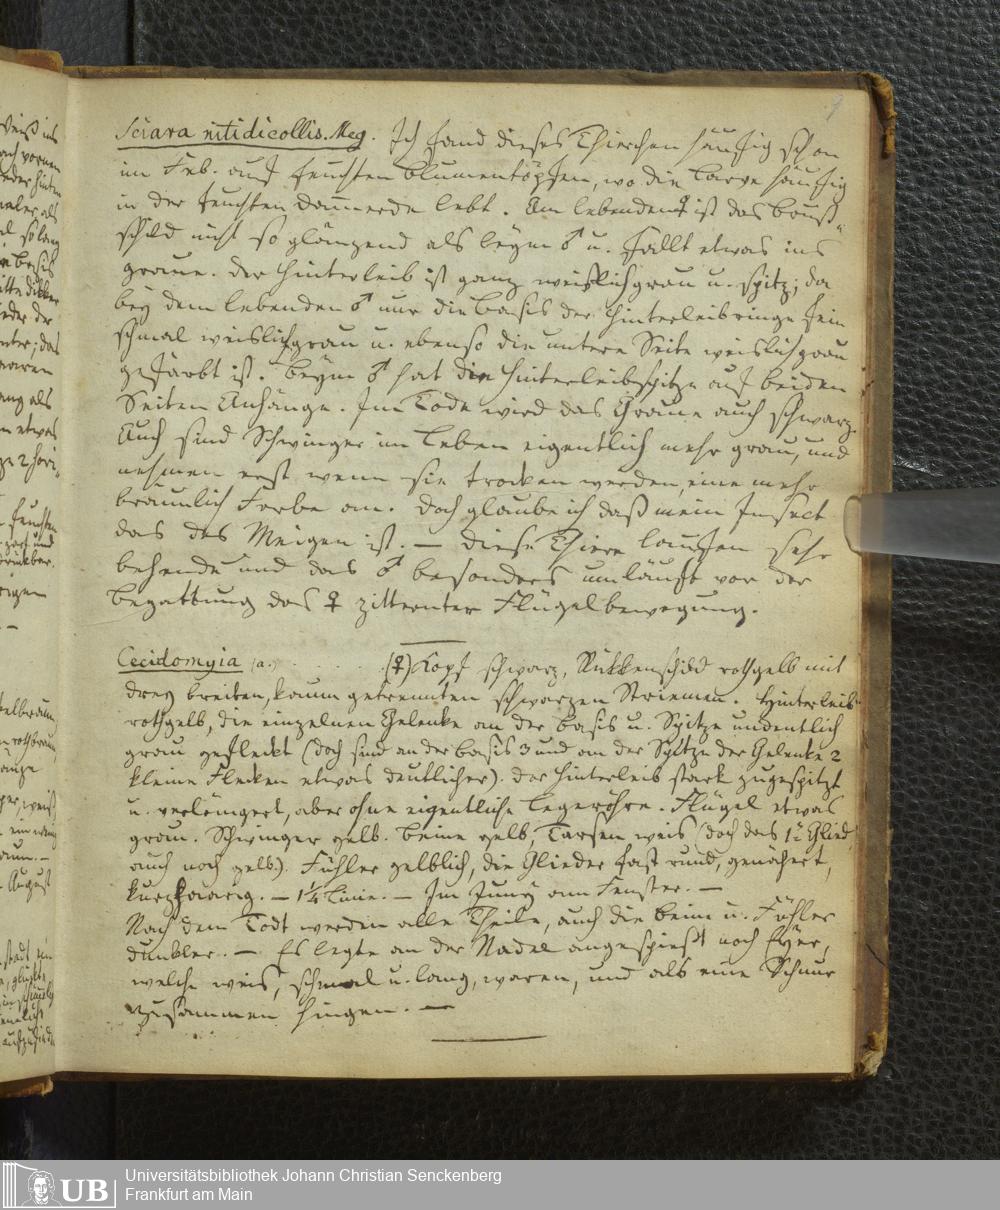 9
Sciara nitidicollis. Meg. Ich fand dieses Thierchen häufig schon
im Feb. auf feuchten Blumentöpfen, wo die Larve häufig
in der feuchten Dammerde lebt. Am lebenden ♀ ist das Brust-
schild nicht so glänzend als beym ♂ u. fällt etwas ins
graue. Der Hinterleib ist ganz weislichgrau u. spitz; da
bey dem lebenden ♂ nur die Basis der Hinterleibringe fein
schmal weislichgrau u. ebenso die untere Seite weislichgrau
gefärbt ist. Beym ♂ hat die Hinterleibspitze auf beiden
Seiten Anhänge. Im Tode wird das Graue auch schwarz.
Auch sind Schwinger im Leben eigentlich mehr grau, und
nehmen erst wenn sie trocken werden, eine mehr
bräunlich Farbe an. Doch glaube ich daß mein Insect
das des Meigen ist. — Diese Thiere laufen sehr
behende und das ♂ besonders umläuft vor der
Begattung das ♀ zitternter Flügelbewegung.
Cecidomyia (a.) . . . . . (♀) Kopf schwarz, Rükkenschild rothgelb mit
drey breiten, kaum getrennten schwarzen Striemen. Hinterleib
rothgelb, die einzelnen Gelenke an der Basis u. Spitze undentlich
grau gefleckt (doch sind an der Basis 3 und an der Spitze der Gelenke 2
kleine Flecken etwas deutlicher). Der Hinterleib stark zugespitzt
u. verlängert, aber ohne eigentliche Legeröhre. Flügel etwas
grau. Schwinger gelb. Beine gelb, Tarsen weis (doch das 1te Glied
auch noch gelb.). Fühler gelblich, die Glieder fast rund, genähert,
kurzhaarig. — 1¼ Linie. — Im Juny am Fenster. —
Nach dem Todt werden alle Theile, auch die Beine u. Fühler
dunkler. — Es legte an der Nadel angespießt noch Eyer,
welche weis, schmal u. lang, waren, und als eine Schnur
zusammen hingen. —
UB
Universitätsbibliothek Johann Christian Senckenberg
Frankfurt am Main